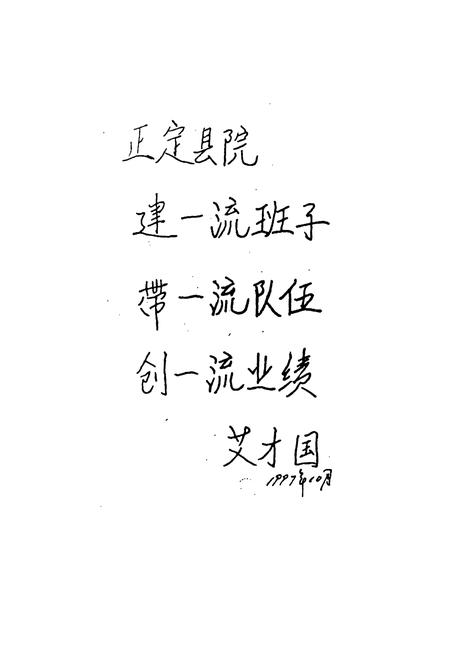 正定县院
建一流班子
带一流队伍
创一流业绩
艾才国
1997年10月